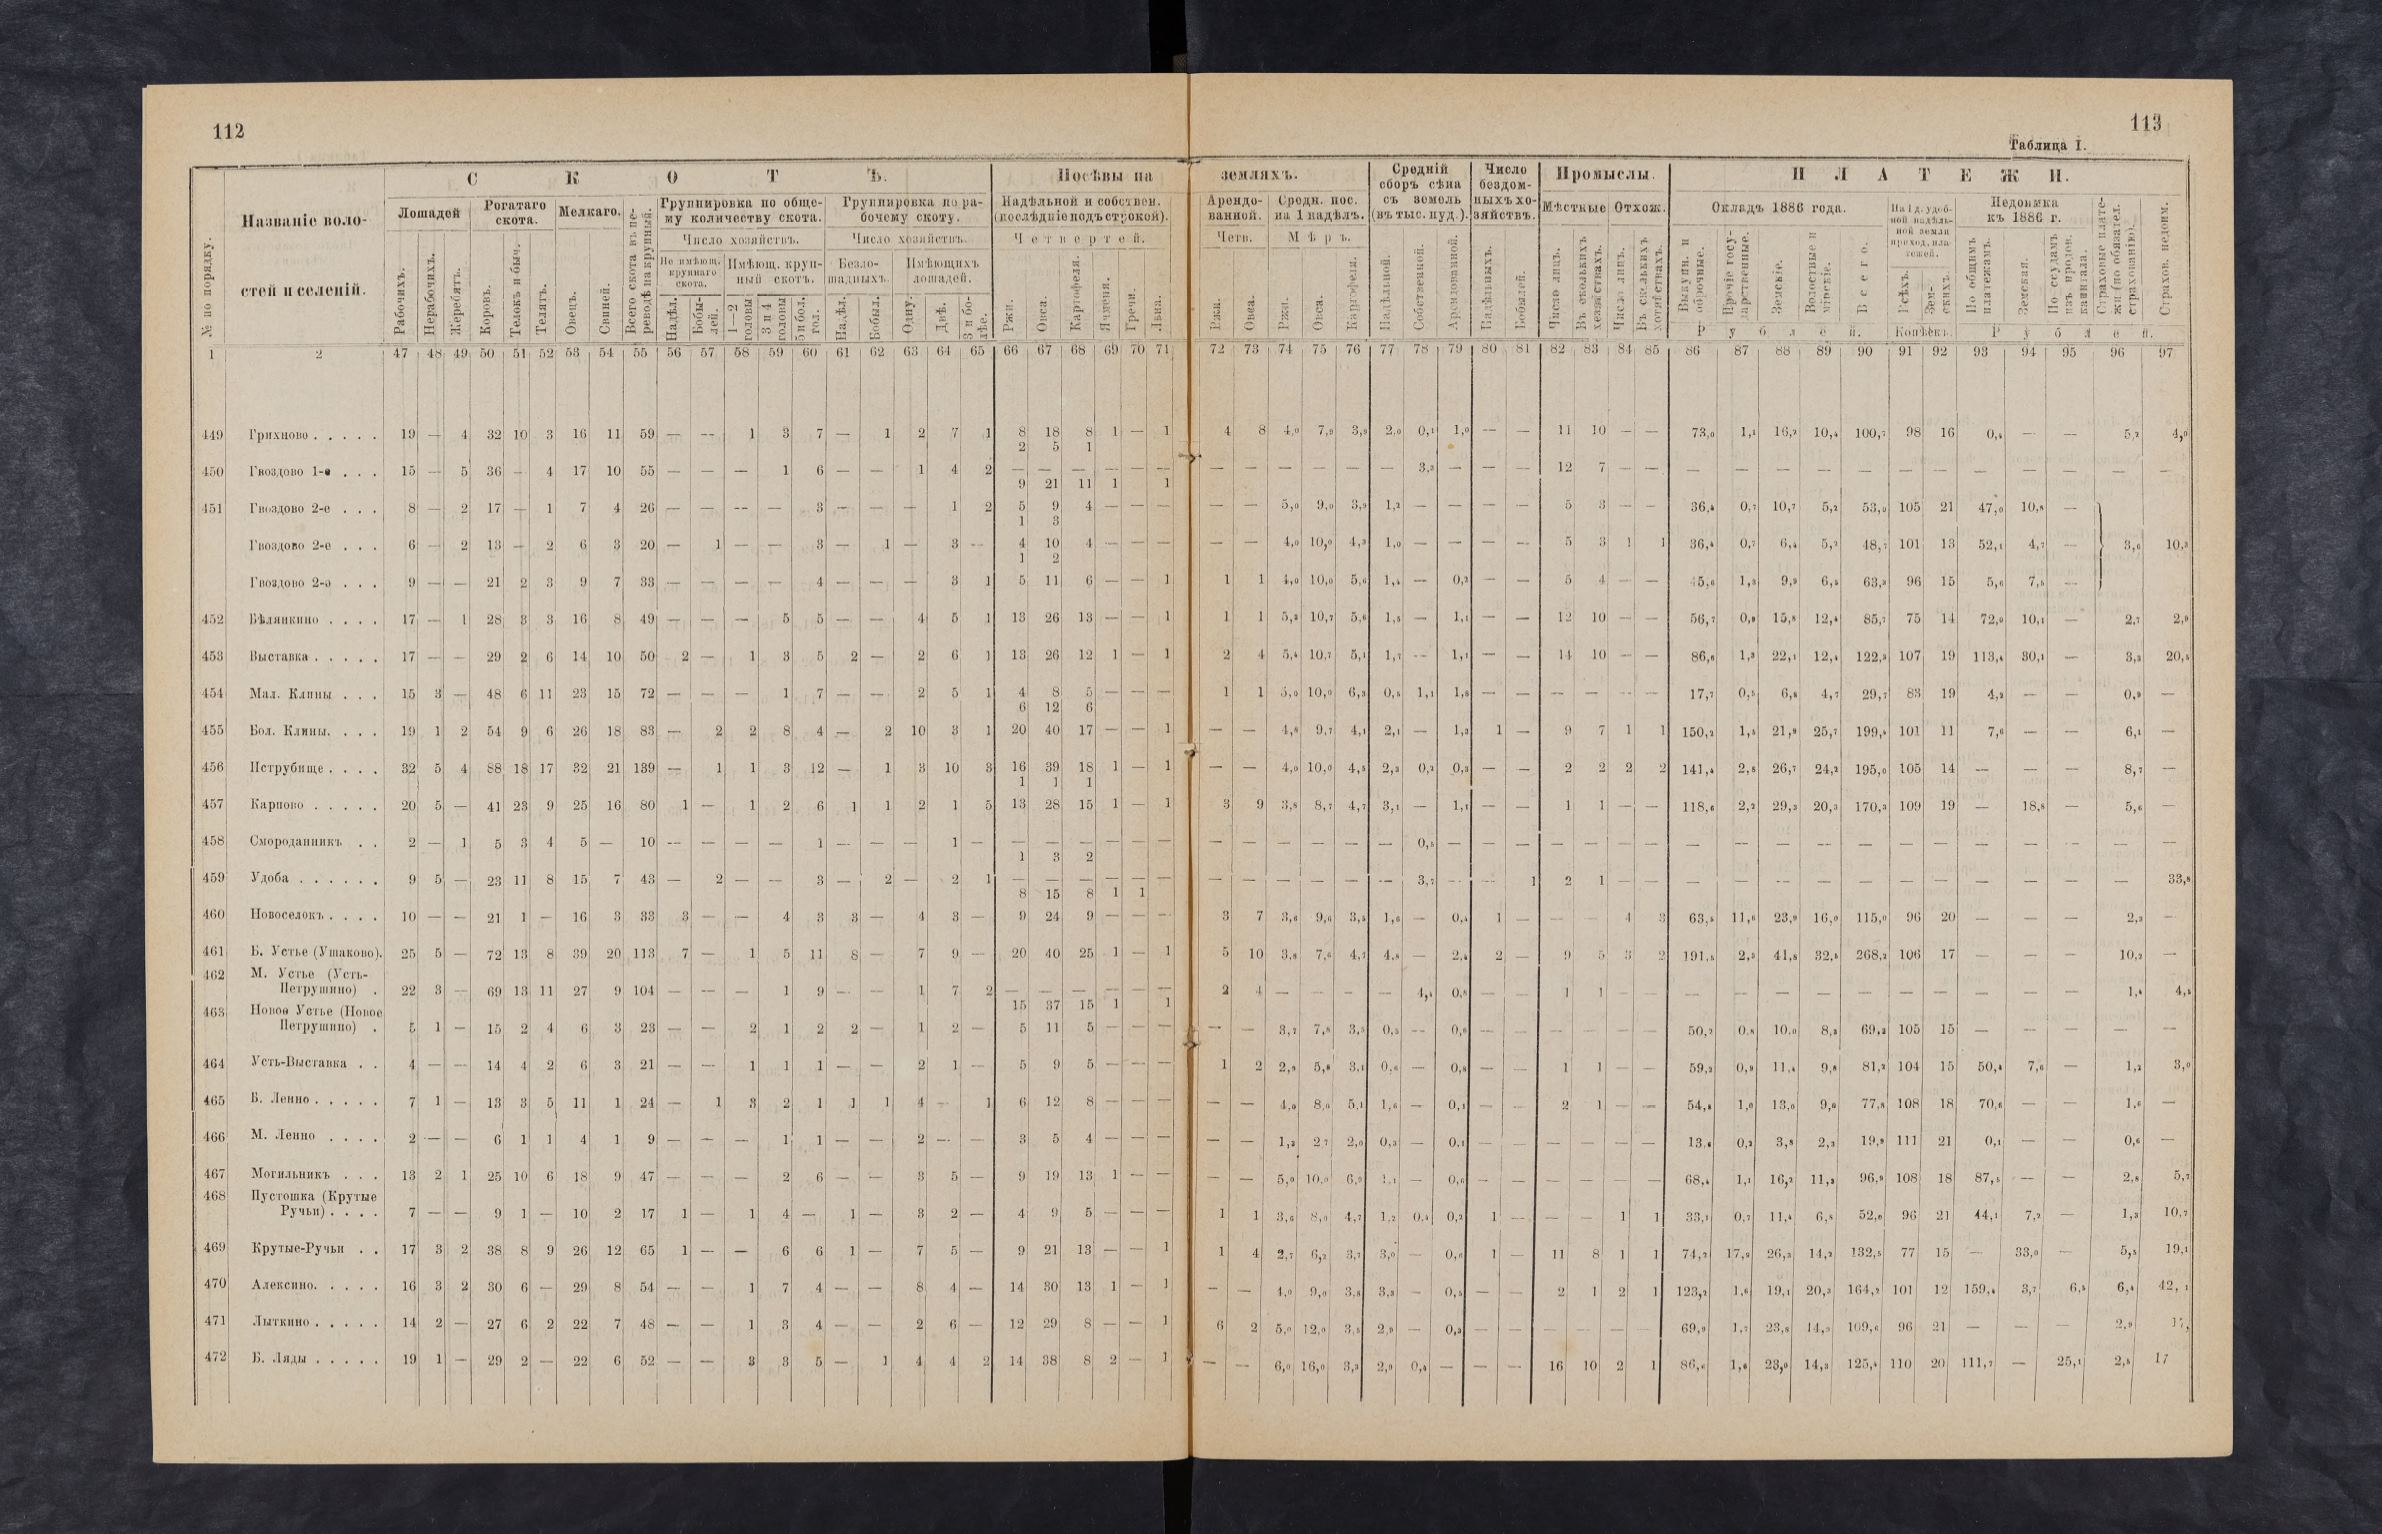 112
113
Таблица I.
№ по порядку.
Названіе воло-
стей и селеній.
С К О Т Ъ.
Посѣвы на
земляхъ.
Средній
сборъ сѣна
съ земель
(въ тыс. пуд.).
Число
бездом-
ныхъ хо-
зяйствъ.
Промыслы.
П Л А Т Е Ж И.
Лошадей
Рогатаго
скота.
Мелкаго.
Всего скота въ пе-
реводѣ на крупный.
Группировка по обще-
му количеству скота.
Группировка по ра-
бочему скоту.
Надѣльной и собствен.
(послѣдніе подъ строкой).
Арендо-
ванной.
Средн. пос.
на 1 надѣлъ.
Мѣстные
Отхож.
Окладъ 1886 года.
На 1 д. удоб-
ной надѣль-
ной земли
приход. пла-
тежей.
Недоимка
къ 1886 г.
Страховые плате-
жи (по обязател.
страхованію).
Страхов. недоим.
Число хозяйствъ.
Число хозяйствъ.
Четвертей.
Четв.
Мѣръ.
Не имѣющ.
крупнаго
скота.
Имѣющ. круп-
ный скотъ.
Безло-
шадныхъ.
Имѣющихъ
лошадей.
Рабочихъ.
Нерабочихъ.
Жеребятъ.
Коровъ.
Телокъ и быч.
Телятъ.
Овецъ.
Свиней.
Надѣл.
Бобы-
лей.
1—2
головы
3 и 4
головы
5 и бол.
гол.
Надѣл.
Бобыл.
Одну.
Двѣ.
3 и бо-
лѣе.
Ржи.
Овса.
Картофеля.
Ячменя.
Гречи.
Льна.
Ржи.
Овса.
Ржи.
Овса.
Картофеля.
Надѣльной.
Собственной.
Арендованной.
Надѣльныхъ.
Бобылей.
Число лицъ.
Въ сколькихъ
хозяйствахъ.
Число лицъ.
Въ сколькихъ
хозяйствахъ.
Выкупн. и
оброчные.
Прочіе госу-
дарственные.
Земскіе.
Волостные и
мірскіе.
Всего.
Всѣхъ.
Зем-
скихъ.
По общимъ
платежамъ.
Земская.
По ссудамъ
изъ продов.
капитала.
Рублей.
Копѣекъ.
Рублей.
1 2 47 48 49 50 51 52 53 54 55 56 57 58 59 60 61 62 63 64 65 66 67 68 69 70 71 72 73 74 75 76 77 78 79 80 81 82 83 84 85 86 87 88 89 90 91 92 93 94 95 96 97
449 Грихново . . . . . 19 — 4 32 10 3 16 11 59 — — 1 3 7 — 1 2 7 1 8 18 8 1 — 1 4 8 4,0 7,9 3,9 2,0 0,1 1,0 — — 11 10 — — 73,0 1,1 16,2 10,4 100,7 98 16 0,4 — — 5,2 4,0
2 5 1
450 Гвоздово 1-е . . . 15 — 5 36 — 4 17 10 55 — — — 1 6 — — 1 4 2 — — — — — — — — — — — — 3,3 — — — 12 7 — — — — — — — — — — — — — —
9 21 11 1 1
451 Гвоздово 2-е . . . 8 — 2 17 — 1 7 4 26 — — — — 3 — — — 1 2 5 9 4 — — — — — 5,0 9,0 3,9 1,2 — — — — 5 3 — — 36,4 0,7 10,7 5,2 53,0 105 21 47,0 10,8 —
1 3
Гвоздово 2-е . . . 6 — 2 13 — 2 6 3 20 — 1 — — 3 — 1 — 3 — 4 10 4 — — — — — 4,0 10,0 4,3 1,0 — — — — 5 3 1 1 36,4 0,7 6,4 5,2 48,7 101 13 52,1 4,7 — 3,6 10,3
1 2
Гвоздово 2-е . . . 9 — — 21 2 3 9 7 33 — — — — 4 — — — 3 1 5 11 6 — — 1 1 1 4,0 10,0 5,6 1,4 — 0,3 — — 5 4 — — 45,6 1,3 9,9 6,5 63,3 96 15 5,6 7,5 —
452 Бѣлянкино . . . . 17 — 1 28 3 3 16 8 49 — — — 5 5 — — 4 5 1 13 26 13 — — 1 1 1 5,3 10,7 5,6 1,5 — 1,1 — — 12 10 — — 56,7 0,9 15,8 12,4 85,7 75 14 72,0 10,1 — 2,7 2,9
453 Выставка . . . . . 17 — — 29 2 6 14 10 50 2 — 1 3 5 2 — 2 6 1 13 26 12 1 — 1 2 4 5,4 10,7 5,1 1,7 — 1,1 — — 14 10 — — 86,6 1,3 22,1 12,4 122,3 107 19 113,4 30,1 — 3,3 20,5
454 Мал. Клины . . . 15 3 — 48 6 11 23 15 72 — — — 1 7 — — 2 5 1 4 8 5 — — — 1 1 5,0 10,0 6,3 0,5 1,1 1,8 — — — — — — 17,7 0,5 6,8 4,7 29,7 83 19 4,3 — — 0,9 —
6 12 6
455 Бол. Клины. . . . 19 1 2 54 9 6 26 18 83 — 2 2 8 4 — 2 10 3 1 20 40 17 — — 1 — — 4,8 9,7 4,1 2,1 — 1,3 1 — 9 7 1 1 150,2 1,5 21,9 25,7 199,5 101 11 7,6 — — 6,1 —
456 Иструбище . . . . 32 5 4 88 18 17 32 21 139 — 1 1 3 12 — 1 3 10 3 16 39 18 1 — 1 — — 4,0 10,0 4,5 2,3 0,2 0,3 — — 2 2 2 2 141,4 2,8 26,7 24,2 195,0 105 14 — — — 8,7 —
1 1 1
457 Карпово . . . . . 20 5 — 41 23 9 25 16 80 1 — 1 2 6 1 1 2 1 5 13 28 15 1 — 1 3 9 3,8 8,7 4,7 3,1 — 1,1 — — 1 1 — — 118,6 2,2 29,3 20,3 170,3 109 19 — 18,8 — 5,6 —
458 Смороданникъ . . 2 — 1 5 3 4 5 — 10 — — — — 1 — — — 1 — — — — — — — — — — — — — 0,5 — — — — — — — — — — — — — — — — — — —
1 3 2
459 Удоба . . . . . . 9 5 — 23 11 8 15 7 43 — 2 — — 3 — 2 — 2 1 — — — — — — — — — — — — 3,7 — — 1 2 1 — — — — — — — — — — — — — 33,8
8 15 8 1 1
460 Новоселокъ . . . . 10 — — 21 1 — 16 3 33 3 — — 4 3 3 — 4 3 — 9 24 9 — — — 3 7 3,6 9,6 3,5 1,6 — 0,4 1 — — — 4 3 63,5 11,6 23,9 16,0 115,0 96 20 — — — 2,3 —
461 Б. Устье (Ушаково). 25 5 — 72 13 8 39 20 113 7 — 1 5 11 8 — 7 9 — 20 40 25 1 — 1 5 10 3,8 7,6 4,7 4,8 — 2,4 2 — 9 5 3 2 191,5 2,3 41,8 32,5 268,2 106 17 — — — 10,2 —
462 М. Устье (Усть-
Петрушино) . 22 3 — 69 13 11 27 9 104 — — — 1 9 — — 1 7 2 — — — — — — 2 4 — — — — 4,4 0,8 — — 1 1 — — — — — — — — — — — — 1,4 4,5
15 37 15 1 1
463 Новое Устье (Новое
Петрушино) . 5 1 — 15 2 4 6 3 23 — — 2 1 2 2 — 1 2 — 5 11 5 — — — — — 3,7 7,8 3,5 0,3 — 0,6 — — — — — — 50,2 0,8 10,0 8,3 69,3 105 15 — — — — —
464 Усть-Выставка . . 4 — — 14 4 2 6 3 21 — — 1 1 1 — — 2 1 — 5 9 5 — — — 1 2 2,9 5,8 3,1 0,6 — 0,8 — — 1 1 — — 59,2 0,9 11,4 9,8 81,3 104 15 50,4 7,6 — 1,2 3,0
465 Б. Ленно . . . . . 7 1 — 13 3 5 11 1 24 — 1 3 2 1 1 1 4 — 1 6 12 8 — — — — — 4,0 8,0 5,1 1,6 — 0,1 — — 2 1 — — 54,8 1,0 13,0 9,0 77,8 108 18 70,6 — — 1,6 —
466 М. Ленно . . . . 2 — — 6 1 1 4 1 9 — — — 1 1 — — 2 — — 3 5 4 — — — — — 1,3 2,7 2,0 0,3 — 0,1 — — — — — — 13,6 0,2 3,8 2,3 19,9 111 21 0,1 — — 0,6 —
467 Могильникъ . . . 13 2 1 25 10 6 18 9 47 — — — 2 6 — — 3 5 — 9 19 13 1 — — — — 5,0 10,0 6,9 1,1 — 0,6 — — — — — — 68,4 1,1 16,2 11,3 96,9 108 18 87,5 — — 2,8 5,7
468 Пустошка (Крутые
Ручьи) . . . . 7 — — 9 1 — 10 2 17 1 — 1 4 — 1 — 3 2 — 4 9 5 — — — 1 1 3,6 8,0 4,7 1,2 0,4 0,2 1 — — — 1 1 33,1 0,7 11,4 6,8 52,0 96 21 44,1 7,2 — 1,3 10,7
469 Крутые-Ручьи . . 17 3 2 38 8 9 26 12 65 1 — — 6 6 1 — 7 5 — 9 21 13 — — 1 1 4 2,7 6,2 3,7 3,0 — 0,6 1 — 11 8 1 1 74,2 17,9 26,3 14,2 132,5 77 15 — 33,0 — 5,5 19,1
470 Алексино. . . . . 16 3 2 30 6 — 29 8 54 — — 1 7 4 — — 8 4 — 14 30 13 1 — 1 — — 4,0 9,0 3,8 3,3 — 0,5 — — 2 1 2 1 123,2 1,6 19,1 20,3 164,2 101 12 159,4 3,7 6,5 6,4 42,1
471 Лыткино . . . . . 14 2 — 27 6 2 22 7 48 — — 1 3 4 — — 2 6 — 12 29 8 — — 1 6 2 5,0 12,0 3,5 2,9 — 0,3 — — — — — — 69,9 1,7 23,8 14,2 109,6 96 21 — — — 2,9 17,
472 Б. Ляды . . . . . 19 1 — 29 2 — 22 6 52 — — 3 3 5 — 1 4 4 2 14 38 8 2 — 1 — — 6,0 16,0 3,3 2,9 0,4 — — — 16 10 2 1 86,6 1,6 23,0 14,3 125,5 110 20 111,7 — 25,1 2,5 17